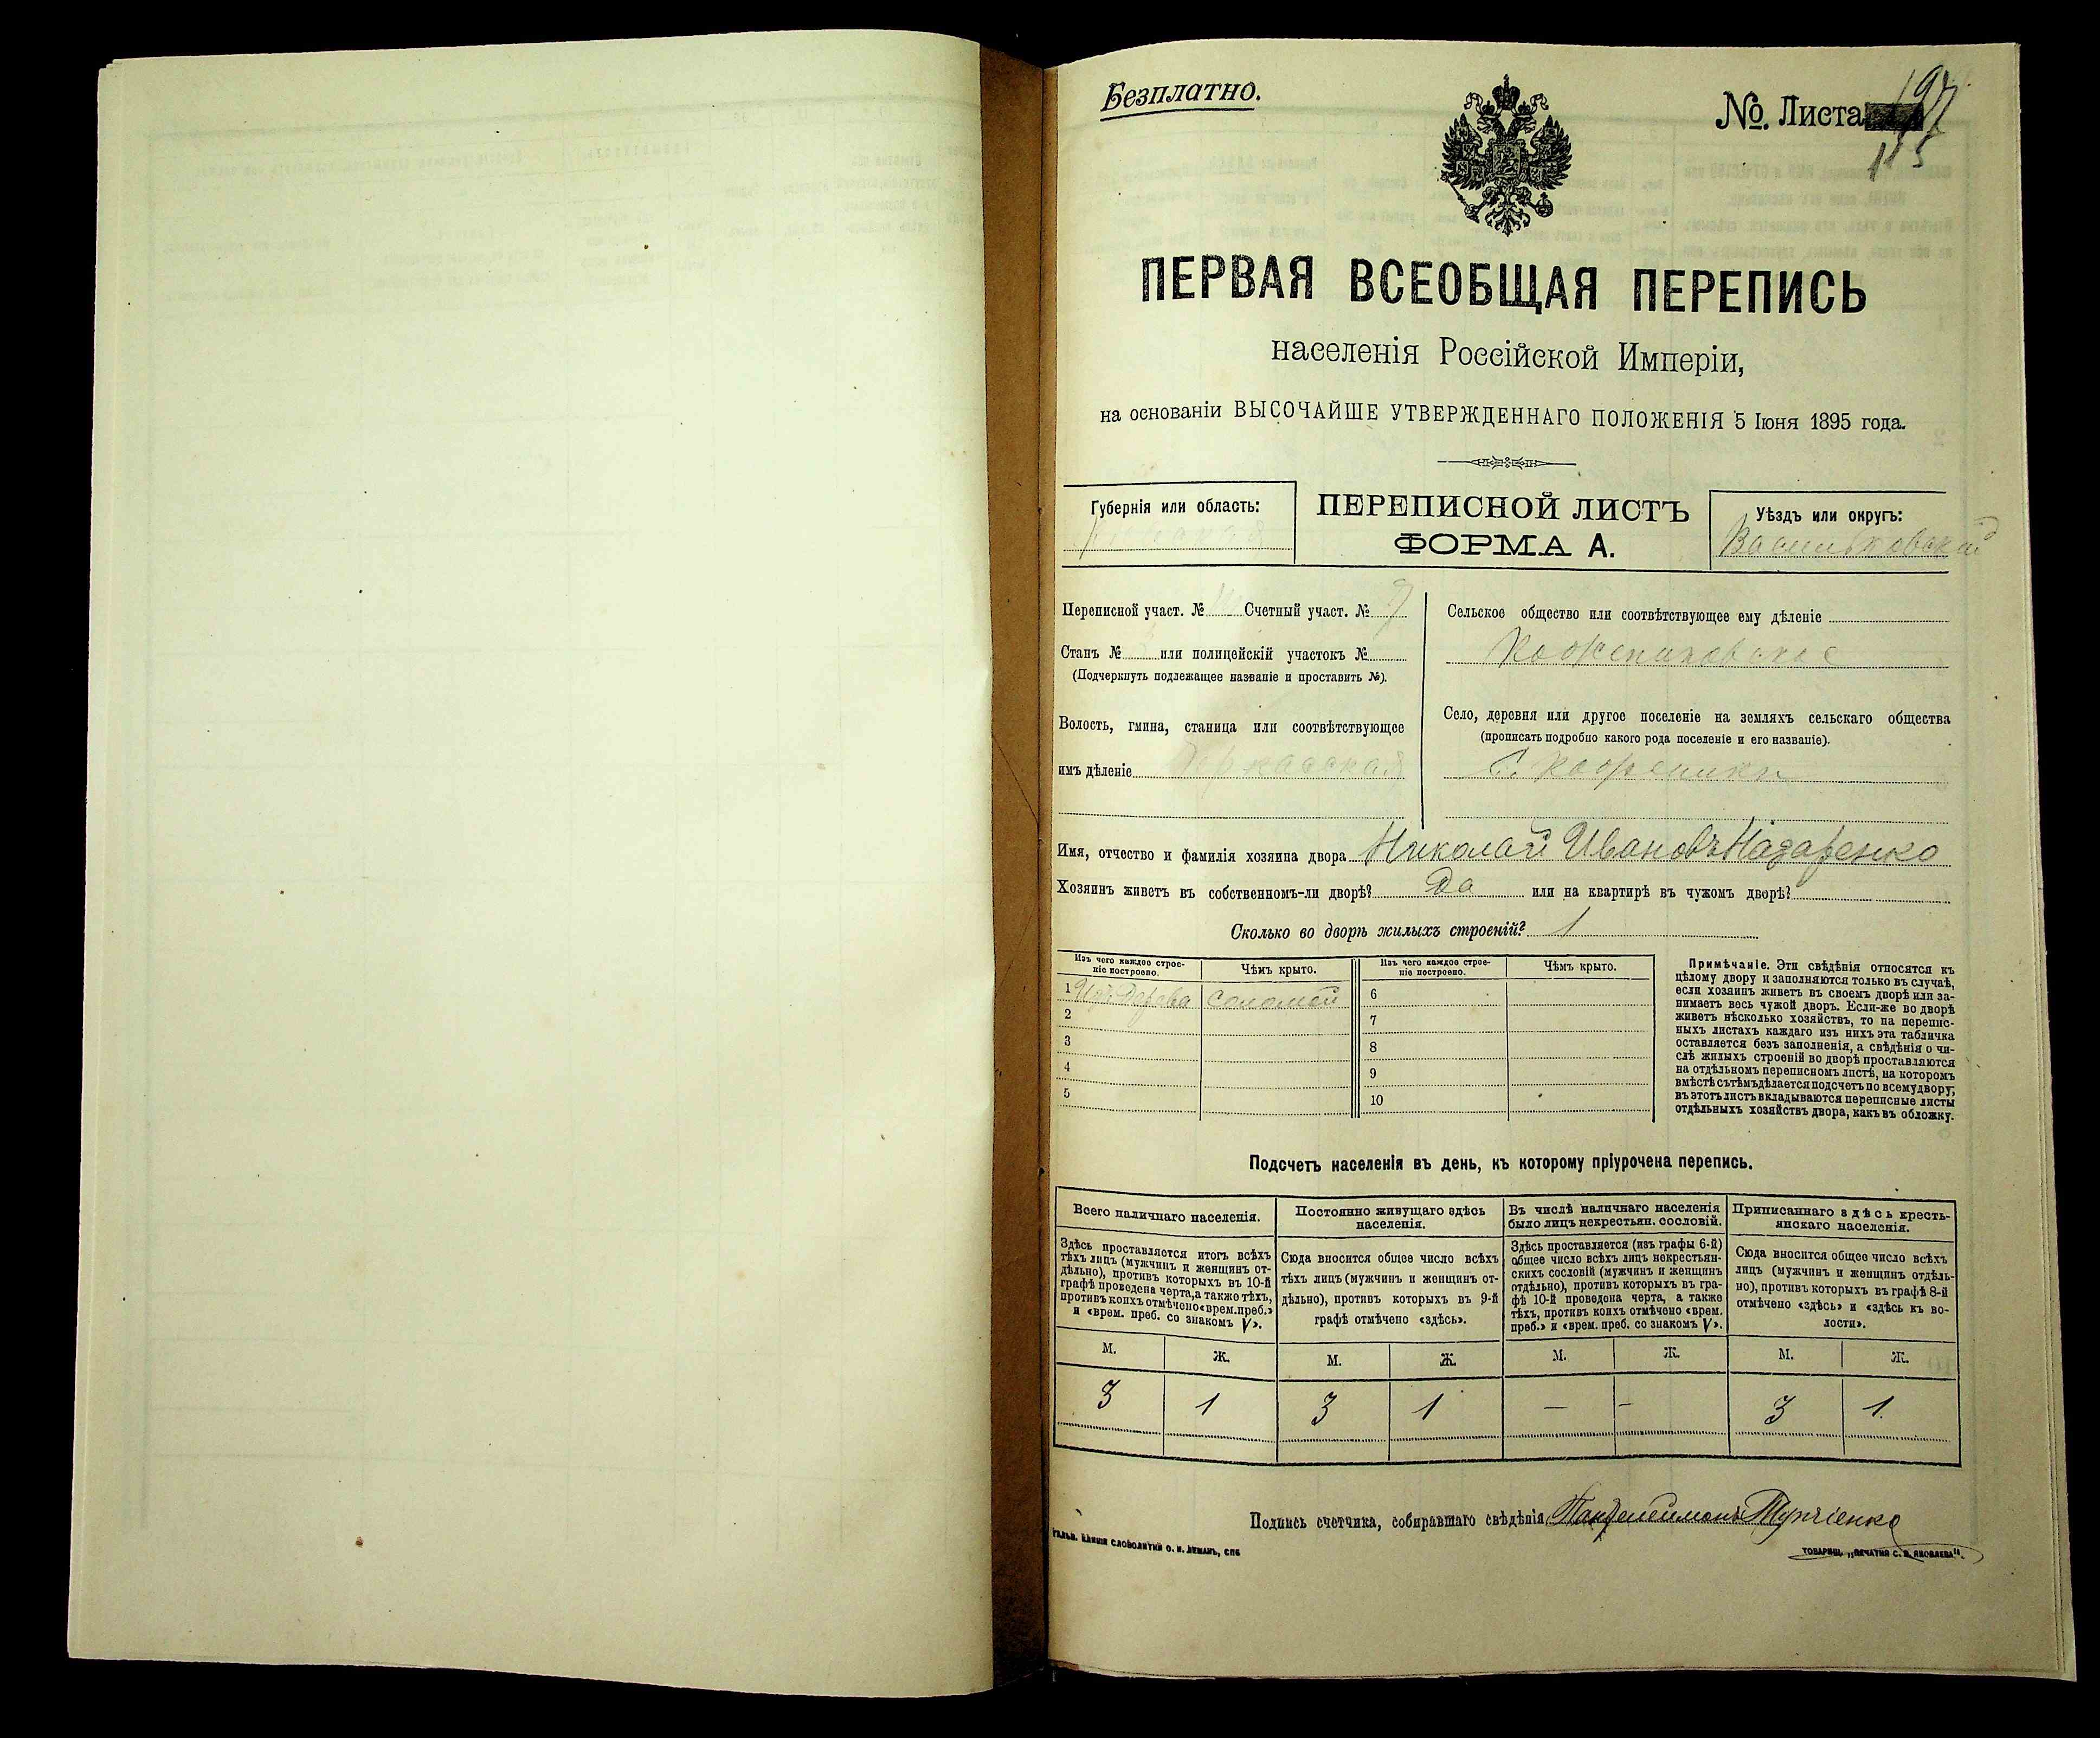 Безплатно.
№. Листа
ПЕРВАЯ ВСЕОБЩАЯ ПЕРЕПИСЬ
населенія Россійской Имперіи,
на основаніи ВЫСОЧАЙШЕ УТВЕРЖДЕННАГО ПОЛОЖЕНІЯ 5 Іюня 1895 года.
Губернія или область:
ПЕРЕПИСНОЙ ЛИСТЪ
ФОРМА А.
Уѣздъ или округъ:
Васильковскій
Переписной участ. № Счетный участ. №
Станъ № или полицейскій участокъ №
(Подчеркнуть подлежащее названіе и проставить №).
Волость, гмина, станица или соотвѣтствующее
имъ дѣленіе
Сельское общество или соотвѣтствующее ему дѣленіе
Кожениковское
Село, деревня или другое поселеніе на земляхъ сельскаго общества
(прописать подробно какого рода поселеніе и его названіе).
С. Коженики
Имя, отчество и фамилія хозяина двора Николай Ивановъ Назаренко
Хозяинъ живетъ въ собственномъ-ли дворѣ? Да или на квартирѣ въ чужомъ дворѣ?
Сколько во дворѣ жилыхъ строеній? 1
Изъ чего каждое строе-
ніе построено.
Чѣмъ крыто.
1 Изъ Дерева Соломой
2
3
4
5
Изъ чего каждое строе-
ніе построено.
Чѣмъ крыто.
6
7
8
9
10
Примѣчаніе. Эти свѣдѣнія относятся къ
цѣлому двору и заполняются только въ случаѣ,
если хозяинъ живетъ въ своемъ дворѣ или за-
нимаетъ весь чужой дворъ. Если-же во дворѣ
живетъ нѣсколько хозяйствъ, то на перепис-
ныхъ листахъ каждаго изъ нихъ эта табличка
оставляется безъ заполненія, а свѣдѣнія о чи-
слѣ жилыхъ строеній во дворѣ проставляются
на отдѣльномъ переписномъ листѣ, на которомъ
вмѣстѣ съ тѣмъ дѣлается подсчетъ по всему двору;
въ этотъ листъ вкладываются переписные листы
отдѣльныхъ хозяйствъ двора, какъ въ обложку.
Подсчетъ населенія въ день, къ которому пріурочена перепись.
Всего наличнаго населенія.
Здѣсь проставляется итогъ всѣхъ
тѣхъ лицъ (мужчинъ и женщинъ от-
дѣльно), противъ которыхъ въ 10-й
графѣ проведена черта, а также тѣхъ,
противъ коихъ отмѣчено «врем. преб.»
и «врем. преб. со знакомъ V».
Постоянно живущаго здѣсь
населенія.
Сюда вносится общее число всѣхъ
тѣхъ лицъ (мужчинъ и женщинъ от-
дѣльно), противъ которыхъ въ 9-й
графѣ отмѣчено «здѣсь».
Въ числѣ наличнаго населенія
было лицъ некрестьян. сословій.
Здѣсь проставляется (изъ графы 6-й)
общее число всѣхъ лицъ некрестьян-
скихъ сословій (мужчинъ и женщинъ
отдѣльно), противъ которыхъ въ гра-
фѣ 10-й проведена черта, а также
тѣхъ, противъ коихъ отмѣчено «врем.
преб.» и «врем. преб. со знакомъ V».
Приписаннаго здѣсь кресть-
янскаго населенія.
Сюда вносится общее число всѣхъ
лицъ (мужчинъ и женщинъ отдѣль-
но), противъ которыхъ въ графѣ 8-й
отмѣчено «здѣсь» и «здѣсь къ во-
лости».
М. Ж. М. Ж. М. Ж. М. Ж.
3 1 3 1 — – 3 1
Подпись счетчика, собиравшаго свѣдѣнія Пантелеймонъ
Гальв. клише словолитни О. И. Леманъ, СПБ
Товарищ. „Печатня С. П. Яковлева".